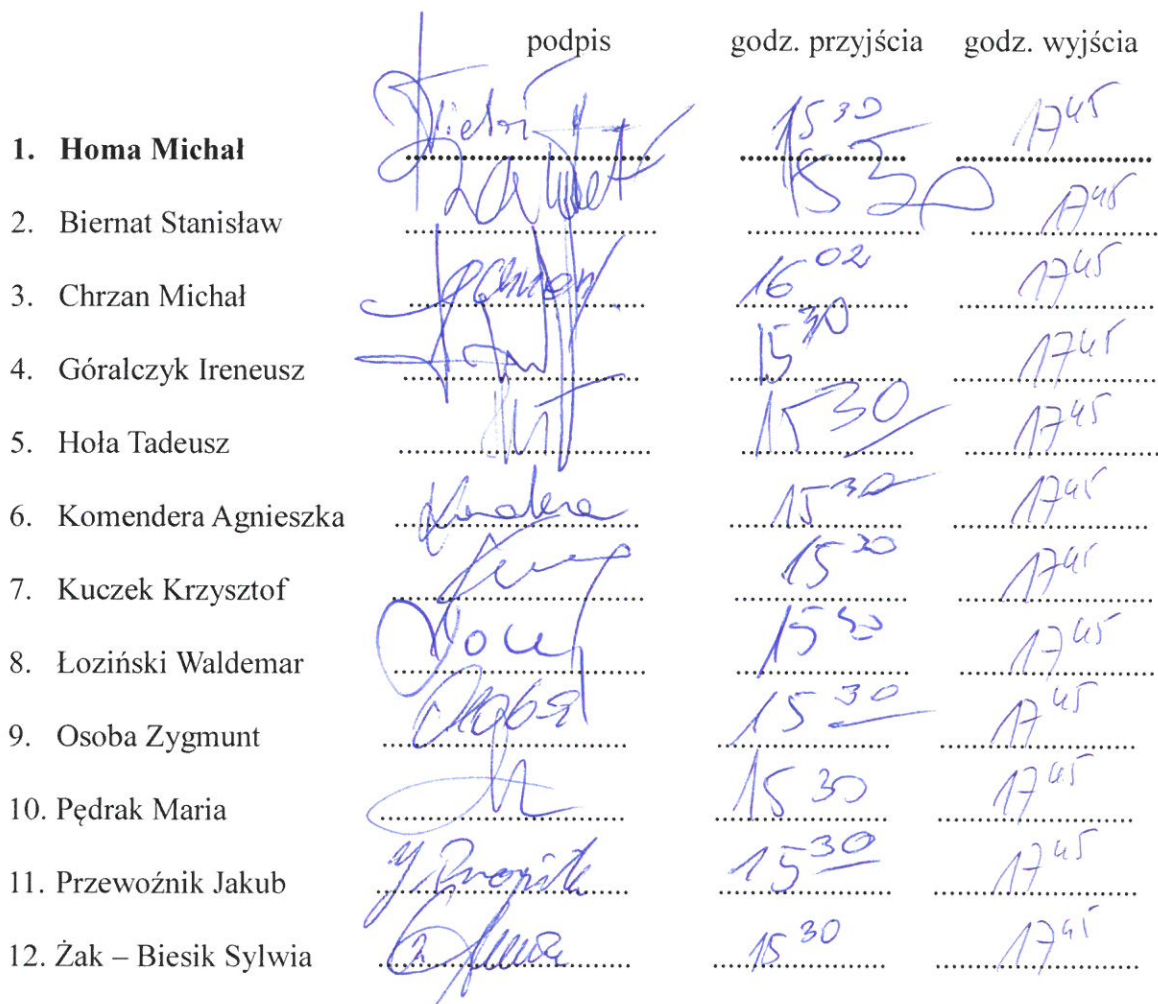 podpis godz. przyjścia godz. wyjścia
1. Homa Michał 15 30 17 45
2. Biernat Stanisław 15 30 17 45
3. Chrzan Michał 16 02 17 45
4. Góralczyk Ireneusz 15 30 17 45
5. Hoła Tadeusz 15 30 17 45
6. Komendera Agnieszka 15 30 17 45
7. Kuczek Krzysztof 15 30 17 45
8. Łoziński Waldemar 15 30 17 45
9. Osoba Zygmunt 15 30 17 45
10. Pędrak Maria 15 30 17 45
11. Przewoźnik Jakub 15 30 17 45
12. Żak – Biesik Sylwia 15 30 17 45